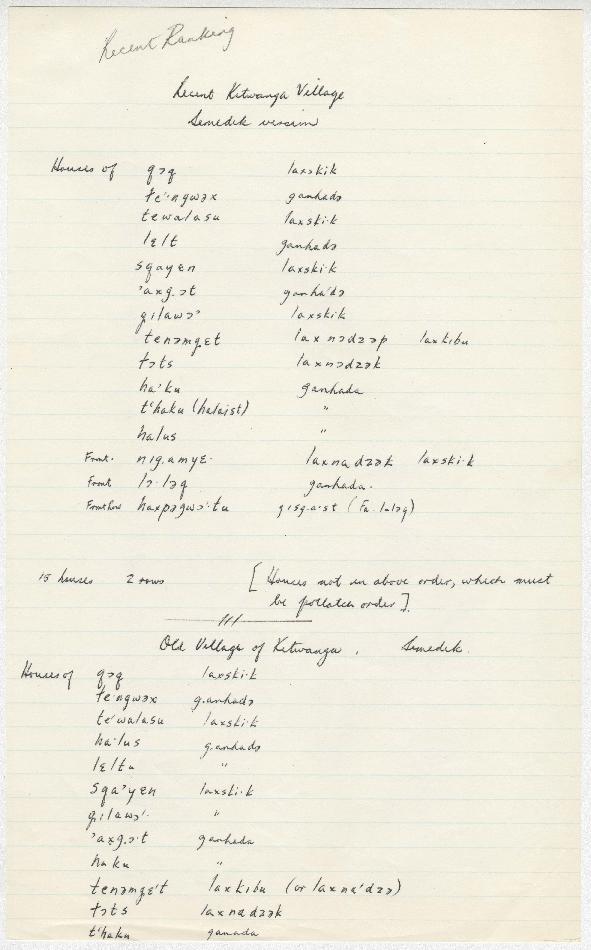 Recent Ranking
Recent Kitwanga Village
Semedik version
Houses of qɔq laxskik
te'·ngwəx ganhadə
tewalasu laxski·k
lɛlt ganhadə
sqayɛn laxski·k
'axg.ɔt ganha'də
gilawɔ' laxski·k
tenəmgɛt laxnɔdzəp laxkıbu
tɔts laxnɔdzək
ha'ku ganhada
t'haku (halaist) "
halus "
Front. nıg.amyɛ· laxnadzək laxski·k
Front lɔ·ləq ganhada.
Front Row haxpəgwɔ·tu gısg.a·st (Fa. lɔləq)
15 houses 2 rows [Houses not in above order, which must
be potlatch order].
Old Village of Kitwanga. Semedik.
Houses of qɔq laxski·k
te·ngwəx g.anhadə
te'walasu laxski·k
ha·lus g.anhadə
lɛltu "
sqa'yɛn laxski·k
gilawɔ'· "
'axg.ɔ·t ganhada
haku "
tenəmgɛ't laxkıbu (or laxna'dzə)
tɔts laxnadzək
t'haku ganada